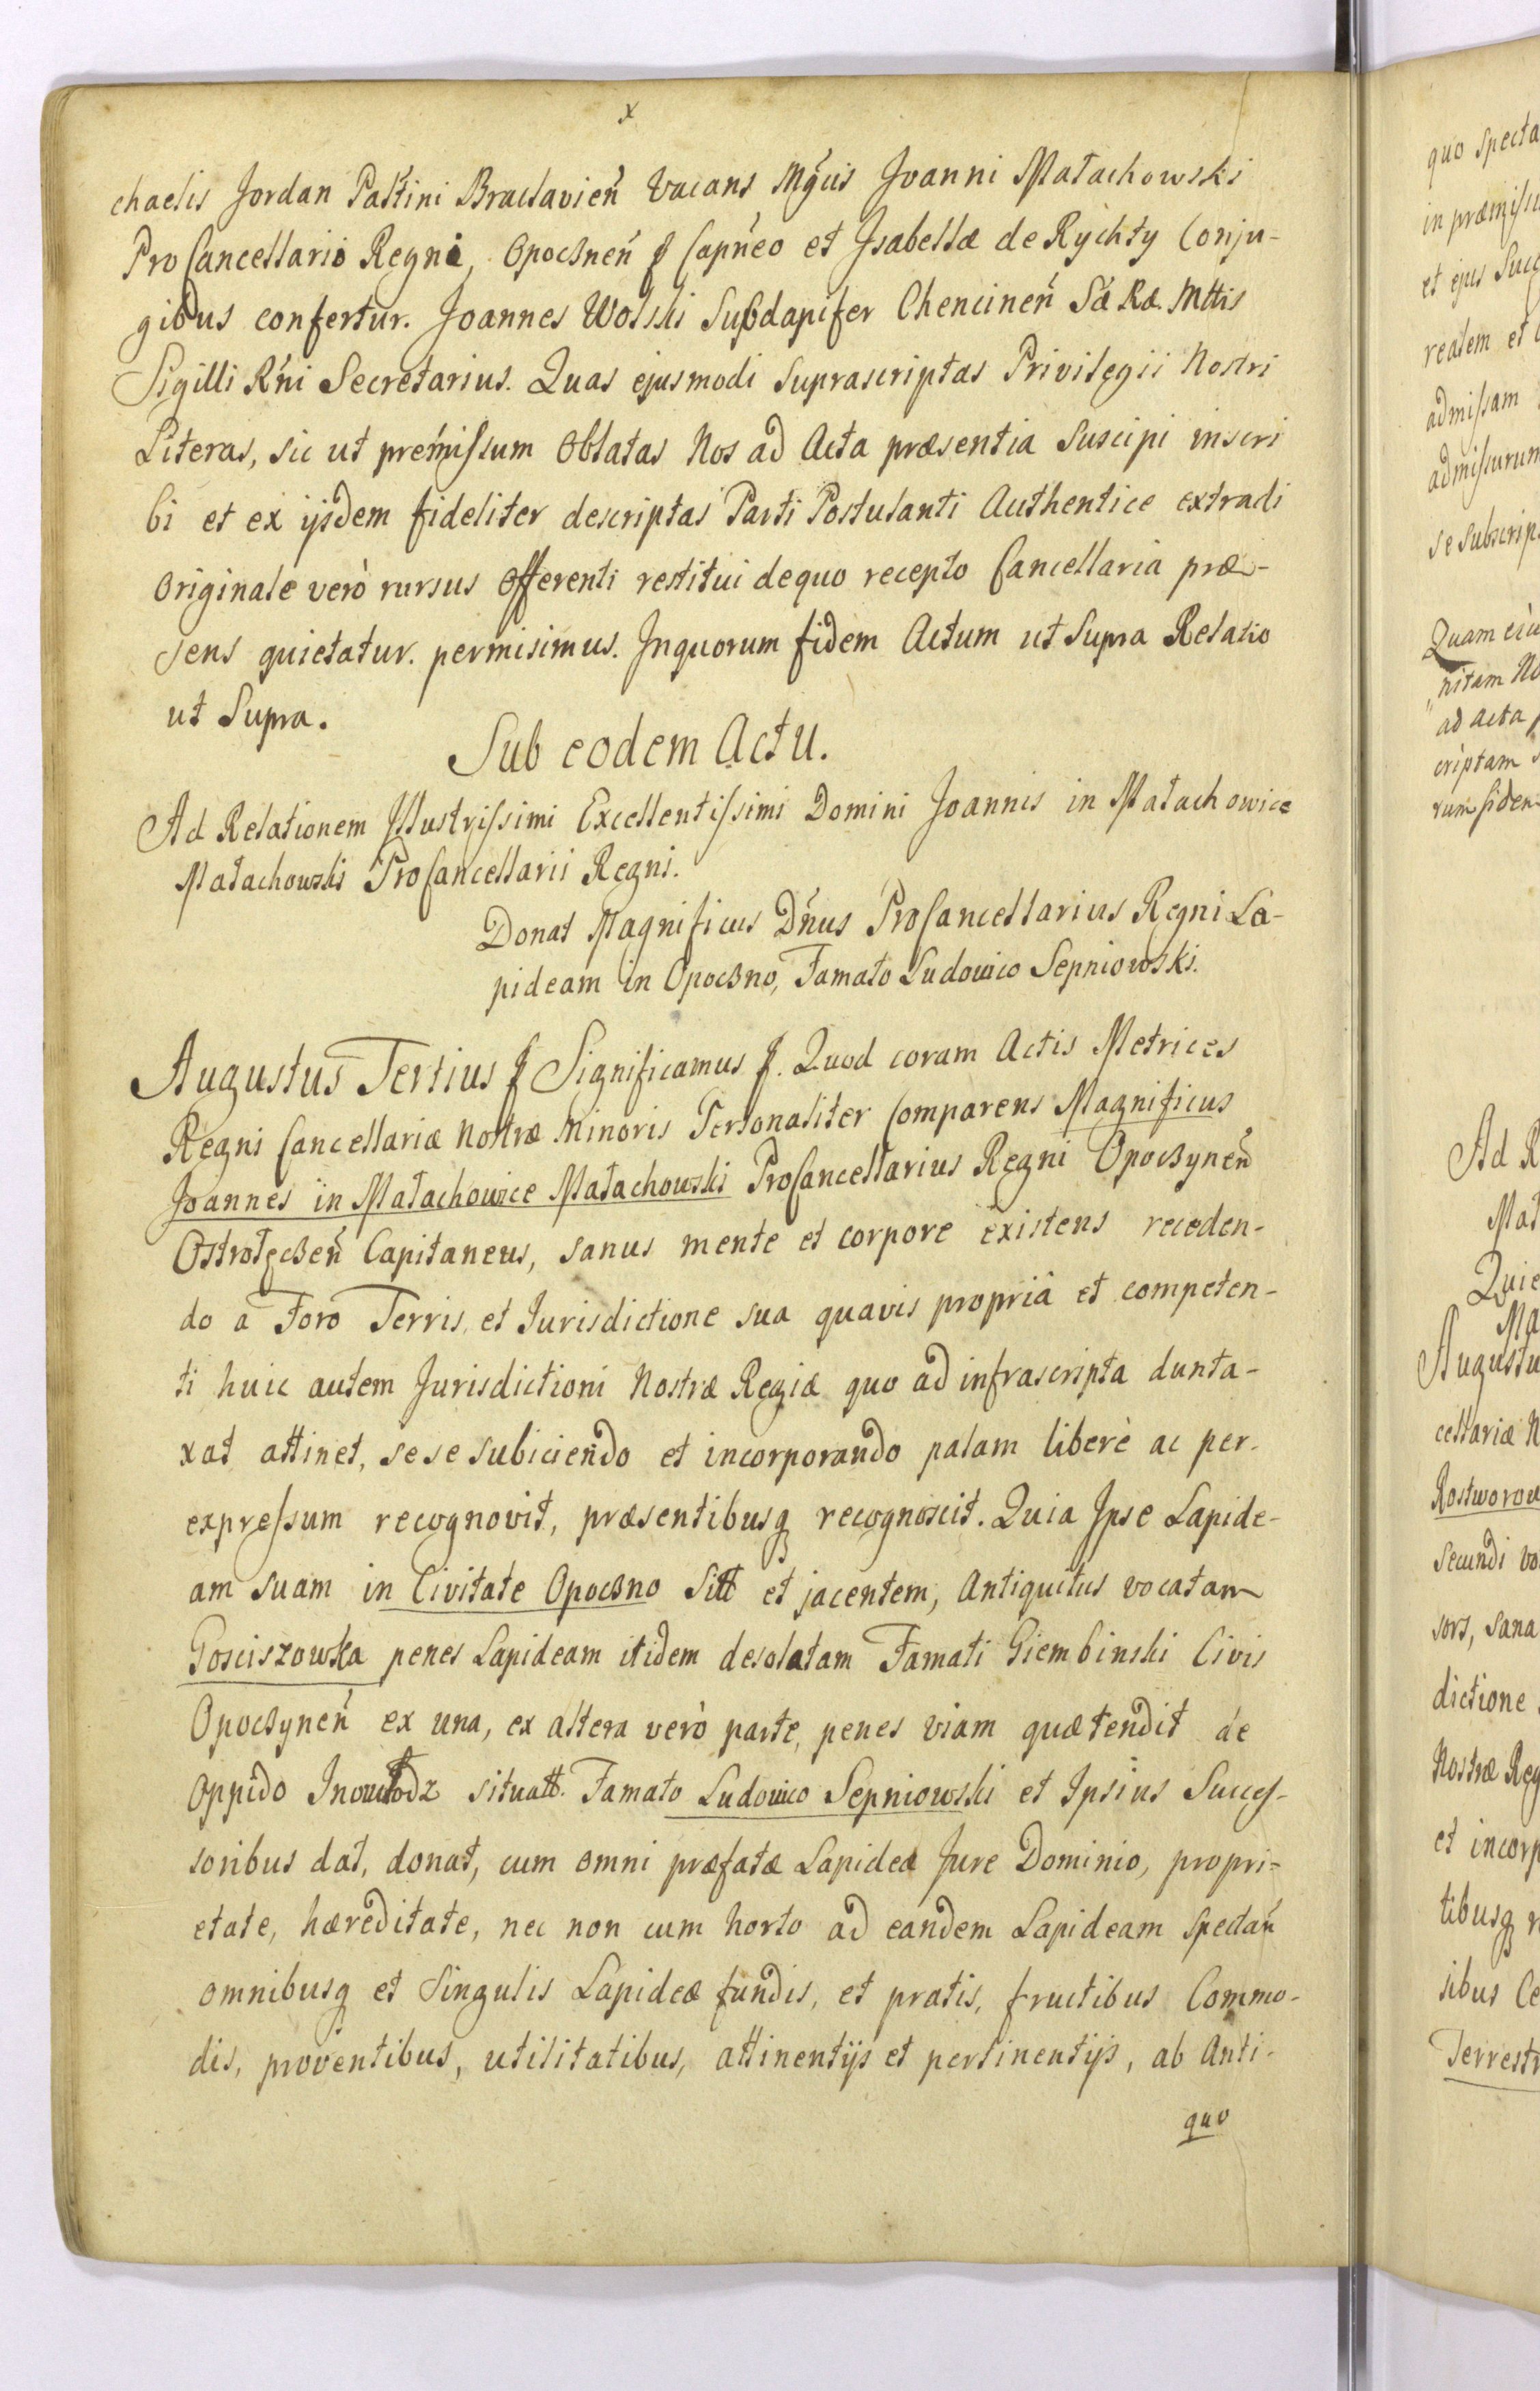 x
chaelis Jordan Pałtini Bracłavień Vacans Mgcis Joanni Małachowski
ProCancellario Regni, Opoczneń & Capneo et Isabellæ de Rychty Conju-
gibus confertur. Joannes Wolski Subdapifer Chencineń Sæ Ræ Mttis
Sigilli Rńi Secretarius. Quas ejusmodi suprascriptas Privilegii Nostri
Literas, sic ut premißum Oblatas Nos ad Acta præsentia Suscipi inscri
bi et ex ijsdem fideliter descriptas Parti Postulanti Authentice extradi
Originale verò rursus Offerenti restitui dequo recepto Cancellaria præ-
sens quietatur. permisimus. Inquorum fidem Actum ut Supra Relatio
ut Supra.
Sub eodem Actu.
Ad Relationem Illustrißimi Excellentißimi Domini Joannis in Małachowice
Małachowski ProCancellarii Regni.
Donat Magnificus Dńus ProCancellarius Regni La-
pideam in Opoczno, Famato Ludovico Sepniowski.
Augustus Tertius & Significamus &. Quod coram Actis Metrices
Regni Cancellariæ Nostræ Minoris Personaliter Comparens Magnificus
Joannes in Małachowice Małachowski ProCancellarius Regni Opoczyneń
Ostrołęczeń Capitaneus, sanus mente et corpore existens receden-
do a Foro Terris, et Jurisdictione sua quavis propriâ et competen-
ti huic autem Jurisdictioni Nostræ Regiæ quo ad infrascripta dunta-
xat attinet, sese subiciendo et incorporando palam liberè ac per-
expreßum recognovit, præsentibusq recognoscit. Quia Ipse Lapide-
am suam in Civitate Opoczno Sitt et jacentem, Antiquitus vocatam
Gosciszowska penes Lapideam itidem desolatam Famati Giembinski Civis
Opoczyneń ex una, ex altera verò parte, penes viam quæ tendit de
Oppido Inowłodz situatt. Famato Ludovico Sepniowski et Ipsius Succeß-
soribus dat, donat, cum omni præfatæ Lapideæ Jure Dominio, propri-
etate, hæreditate, nec non cum horto ad eandem Lapideam spectań
omnibusq et Singulis Lapideæ fundis, et pratis, fructibus Commo-
dis, proventibus, utilitatibus, attinentijs et pertinentijs, ab Anti-
quo
quo specta
in præmißi
et ejus Succ
realem et
admißam
admißurum
se subscrip
Quam eiu
nitam No
ad acta
criptam
rum fidem
Ad R
Mał
Quie
Ma
Augustu
cellariæ N
Rostworow
secundi vo
sors, sana
dictione
Nostræ Reg
et incorp
tibusq r
sibus Ce
Terrestr